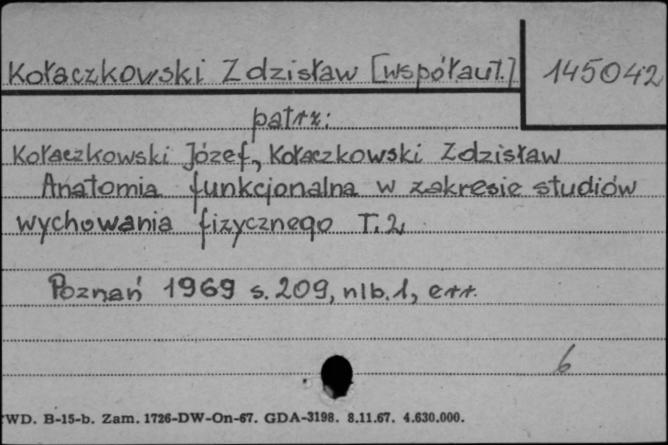 Kołaczkowski Zdzisław [współaut.] 145042
patrz:
Kołaczkowski Józef, Kołaczkowski Zdzisław
Anatomia funkcjonalna w zakresie studiów
wychowania fizycznego T. 2
Poznań 1969 s. 209, nlb. 1, err.
6
WD. B-15-b. Zam. 1726-DW-On-67. GDA-3198. 8.11.67. 4.630.000.